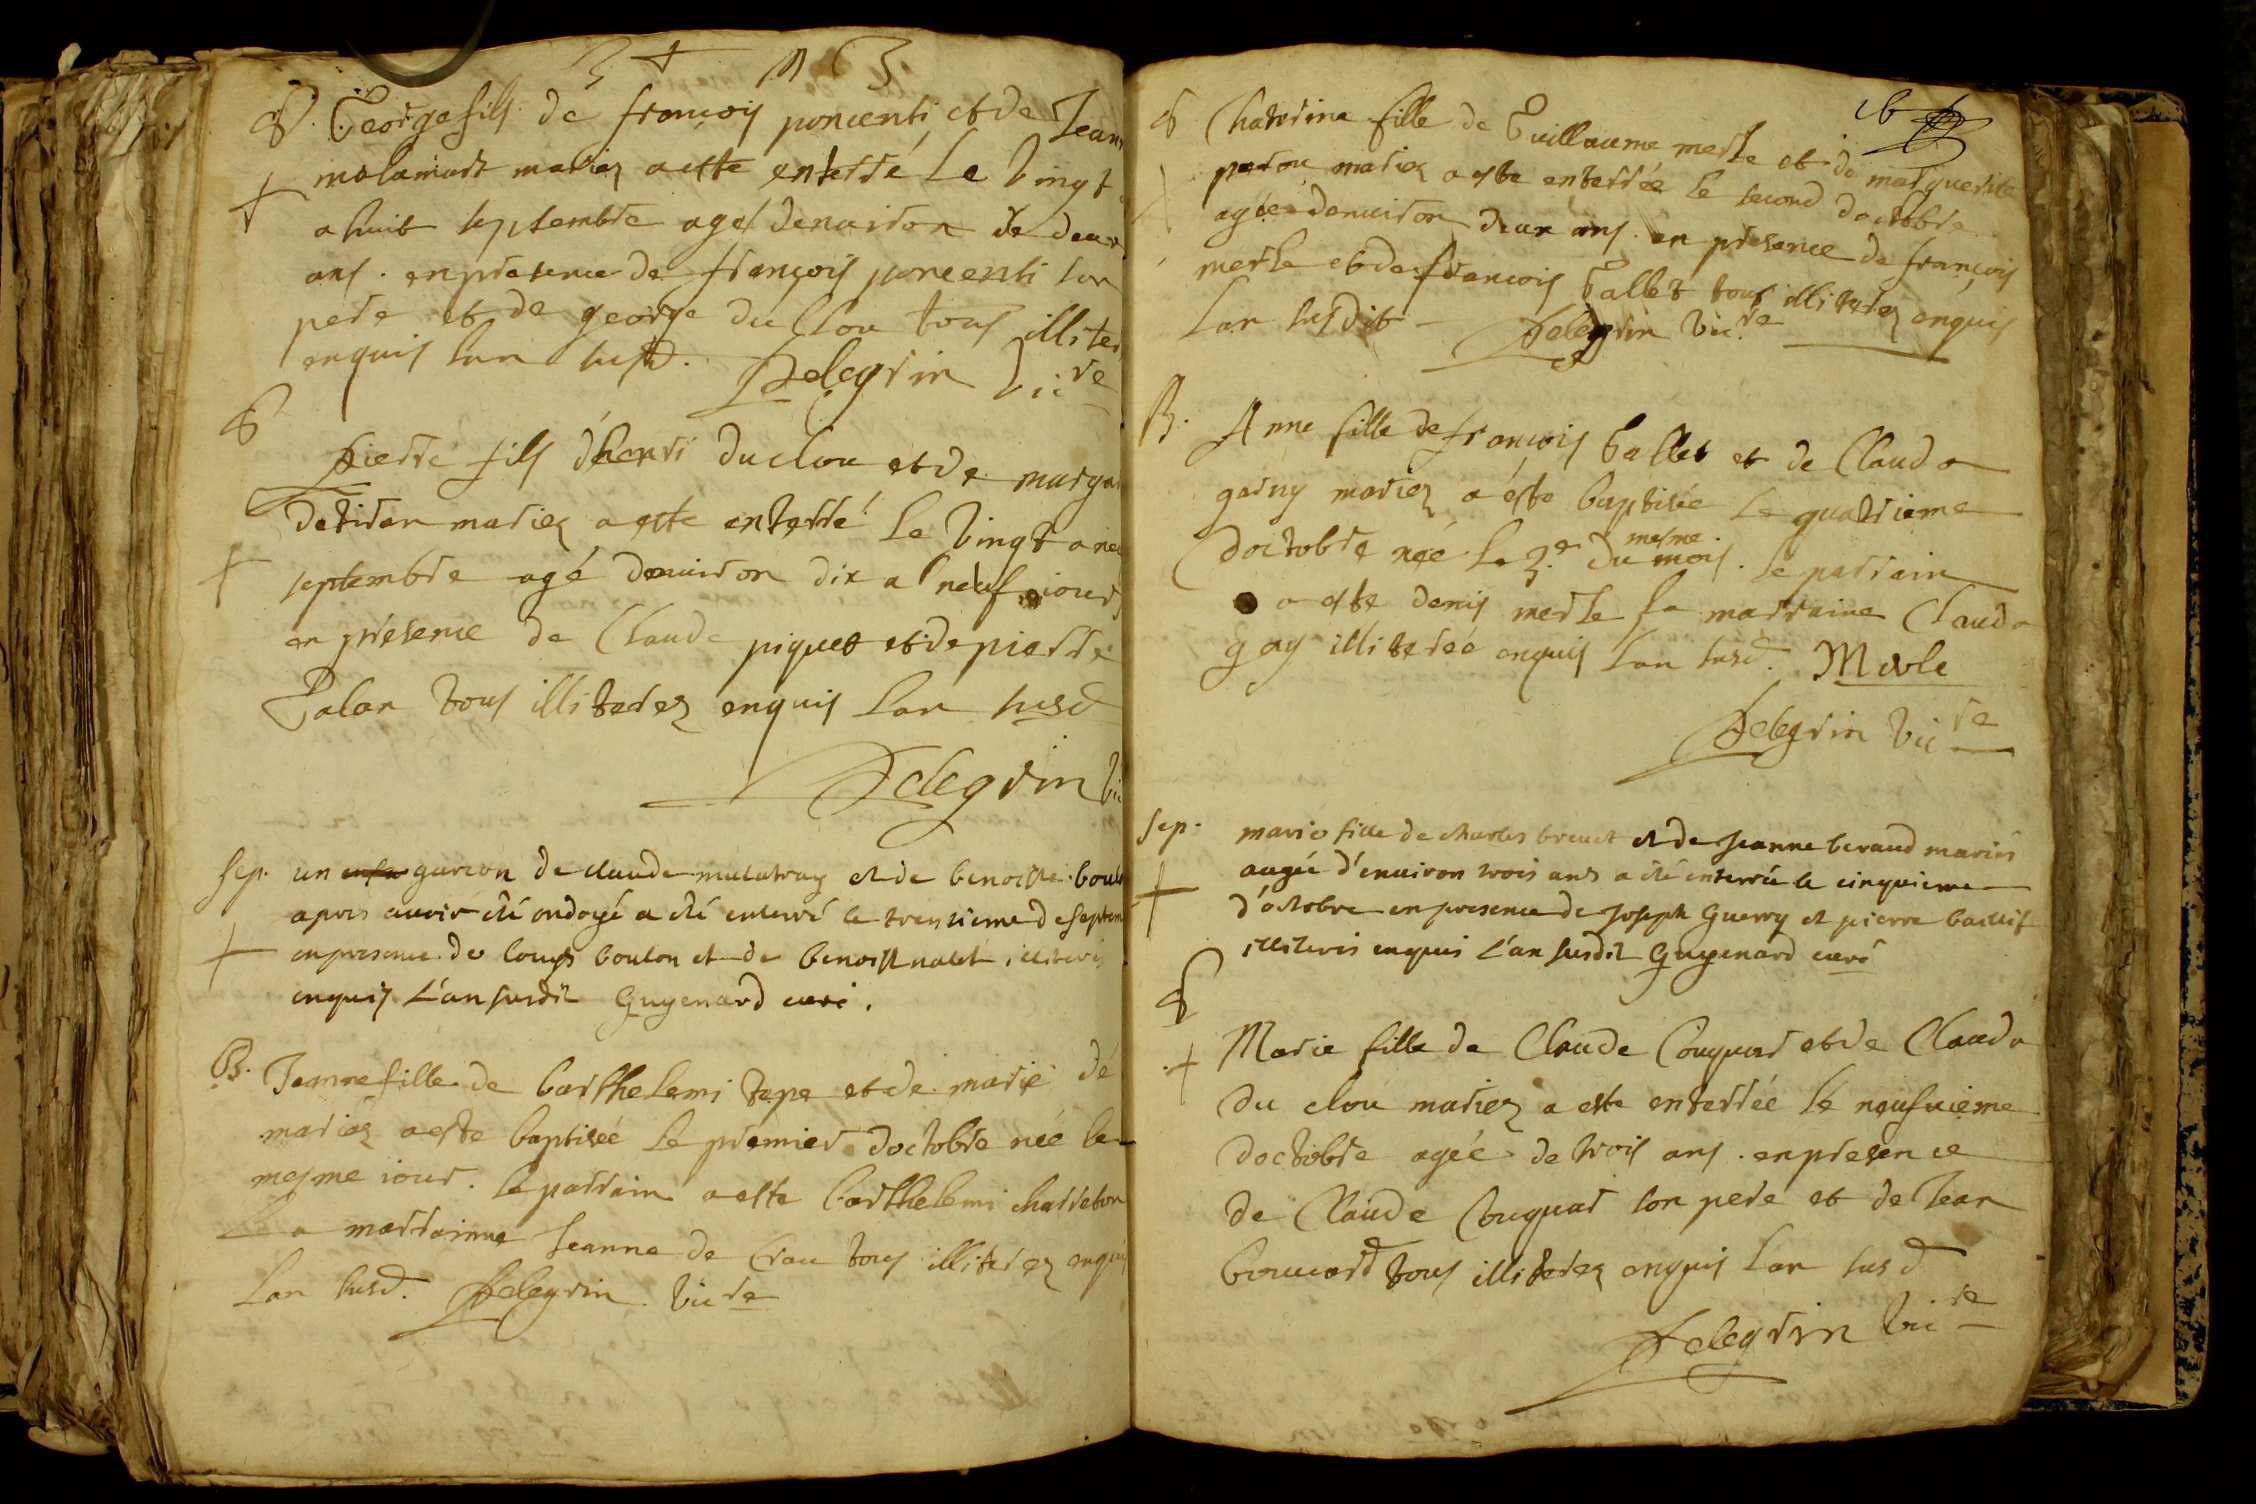 S. George fils de francois poncenti et de Jean
malamart mariez a este enterré le vingt
a huit septembre agé denuiron de deux
ans. en presence de françois poncenti son
pere et de george du clou tous illiter
enquis lan susd. Pelegrin vicre
S
Pierre fils d'henri du clou et de margue
detiran mariez a este enterré le vingt a neu
septembre agé denuiron dix a neuf jours
en présence de Claude piquet et de pierre
Palan tous illiterez enquis lan susd
Pelegrin vi
sep. un enfan garcon de claude malatray et de benoiste boul
apres auoir été ondoyé a été enterré le trentieme de septem
en presence de louys boulon et de benoist nalet illiteris
enquis L'an susdit Guyenard curé.
B. Jeanne fille de barthelemi tepe et de marie dé
mariez a este baptisée le premier doctobre née le
mesme iour. le parrain a este barthelemi charreton
La marrainne Jeanne de Crau tous illiterez enquis
Lan susd. Pelegrin. vicre
S Chaterine fille de Guillaume merle et de marguerite
peron mariez a este enterrée le second doctobre
agée denuiron deux ans. en presence de françois
merle et de francois Gallet tous illiterez enquis
Lan susdit Pelegrin vicre
B. Anne fille de francois Gallet et de Clauda
garny mariez a éste baptisée le quatrieme
doctobre née le 3.e du mesme mois. le parrain
a este denis merle sa marraine Clauda
gay illiterée enquis lan susd. Merle
Pelegrin vicre
sep. marie fille de charles breuet et de Jeanne beraud mariés
augée d'enuiron trois ans a été enterrée le cinquieme
d'octobre en presence de Joseph Guerry et pierre baillif
illiteris enquis L'an susdit Guyenard curé
S
Marie fille de Claude Couquar et de Clauda
du clou mariez a este enterrée le neufuieme
doctobre agée de trois ans. en presence
de Claude Couquar son pere et de Jean
bouuard tous illiterez enquis lan susd
Pelegrin vicre